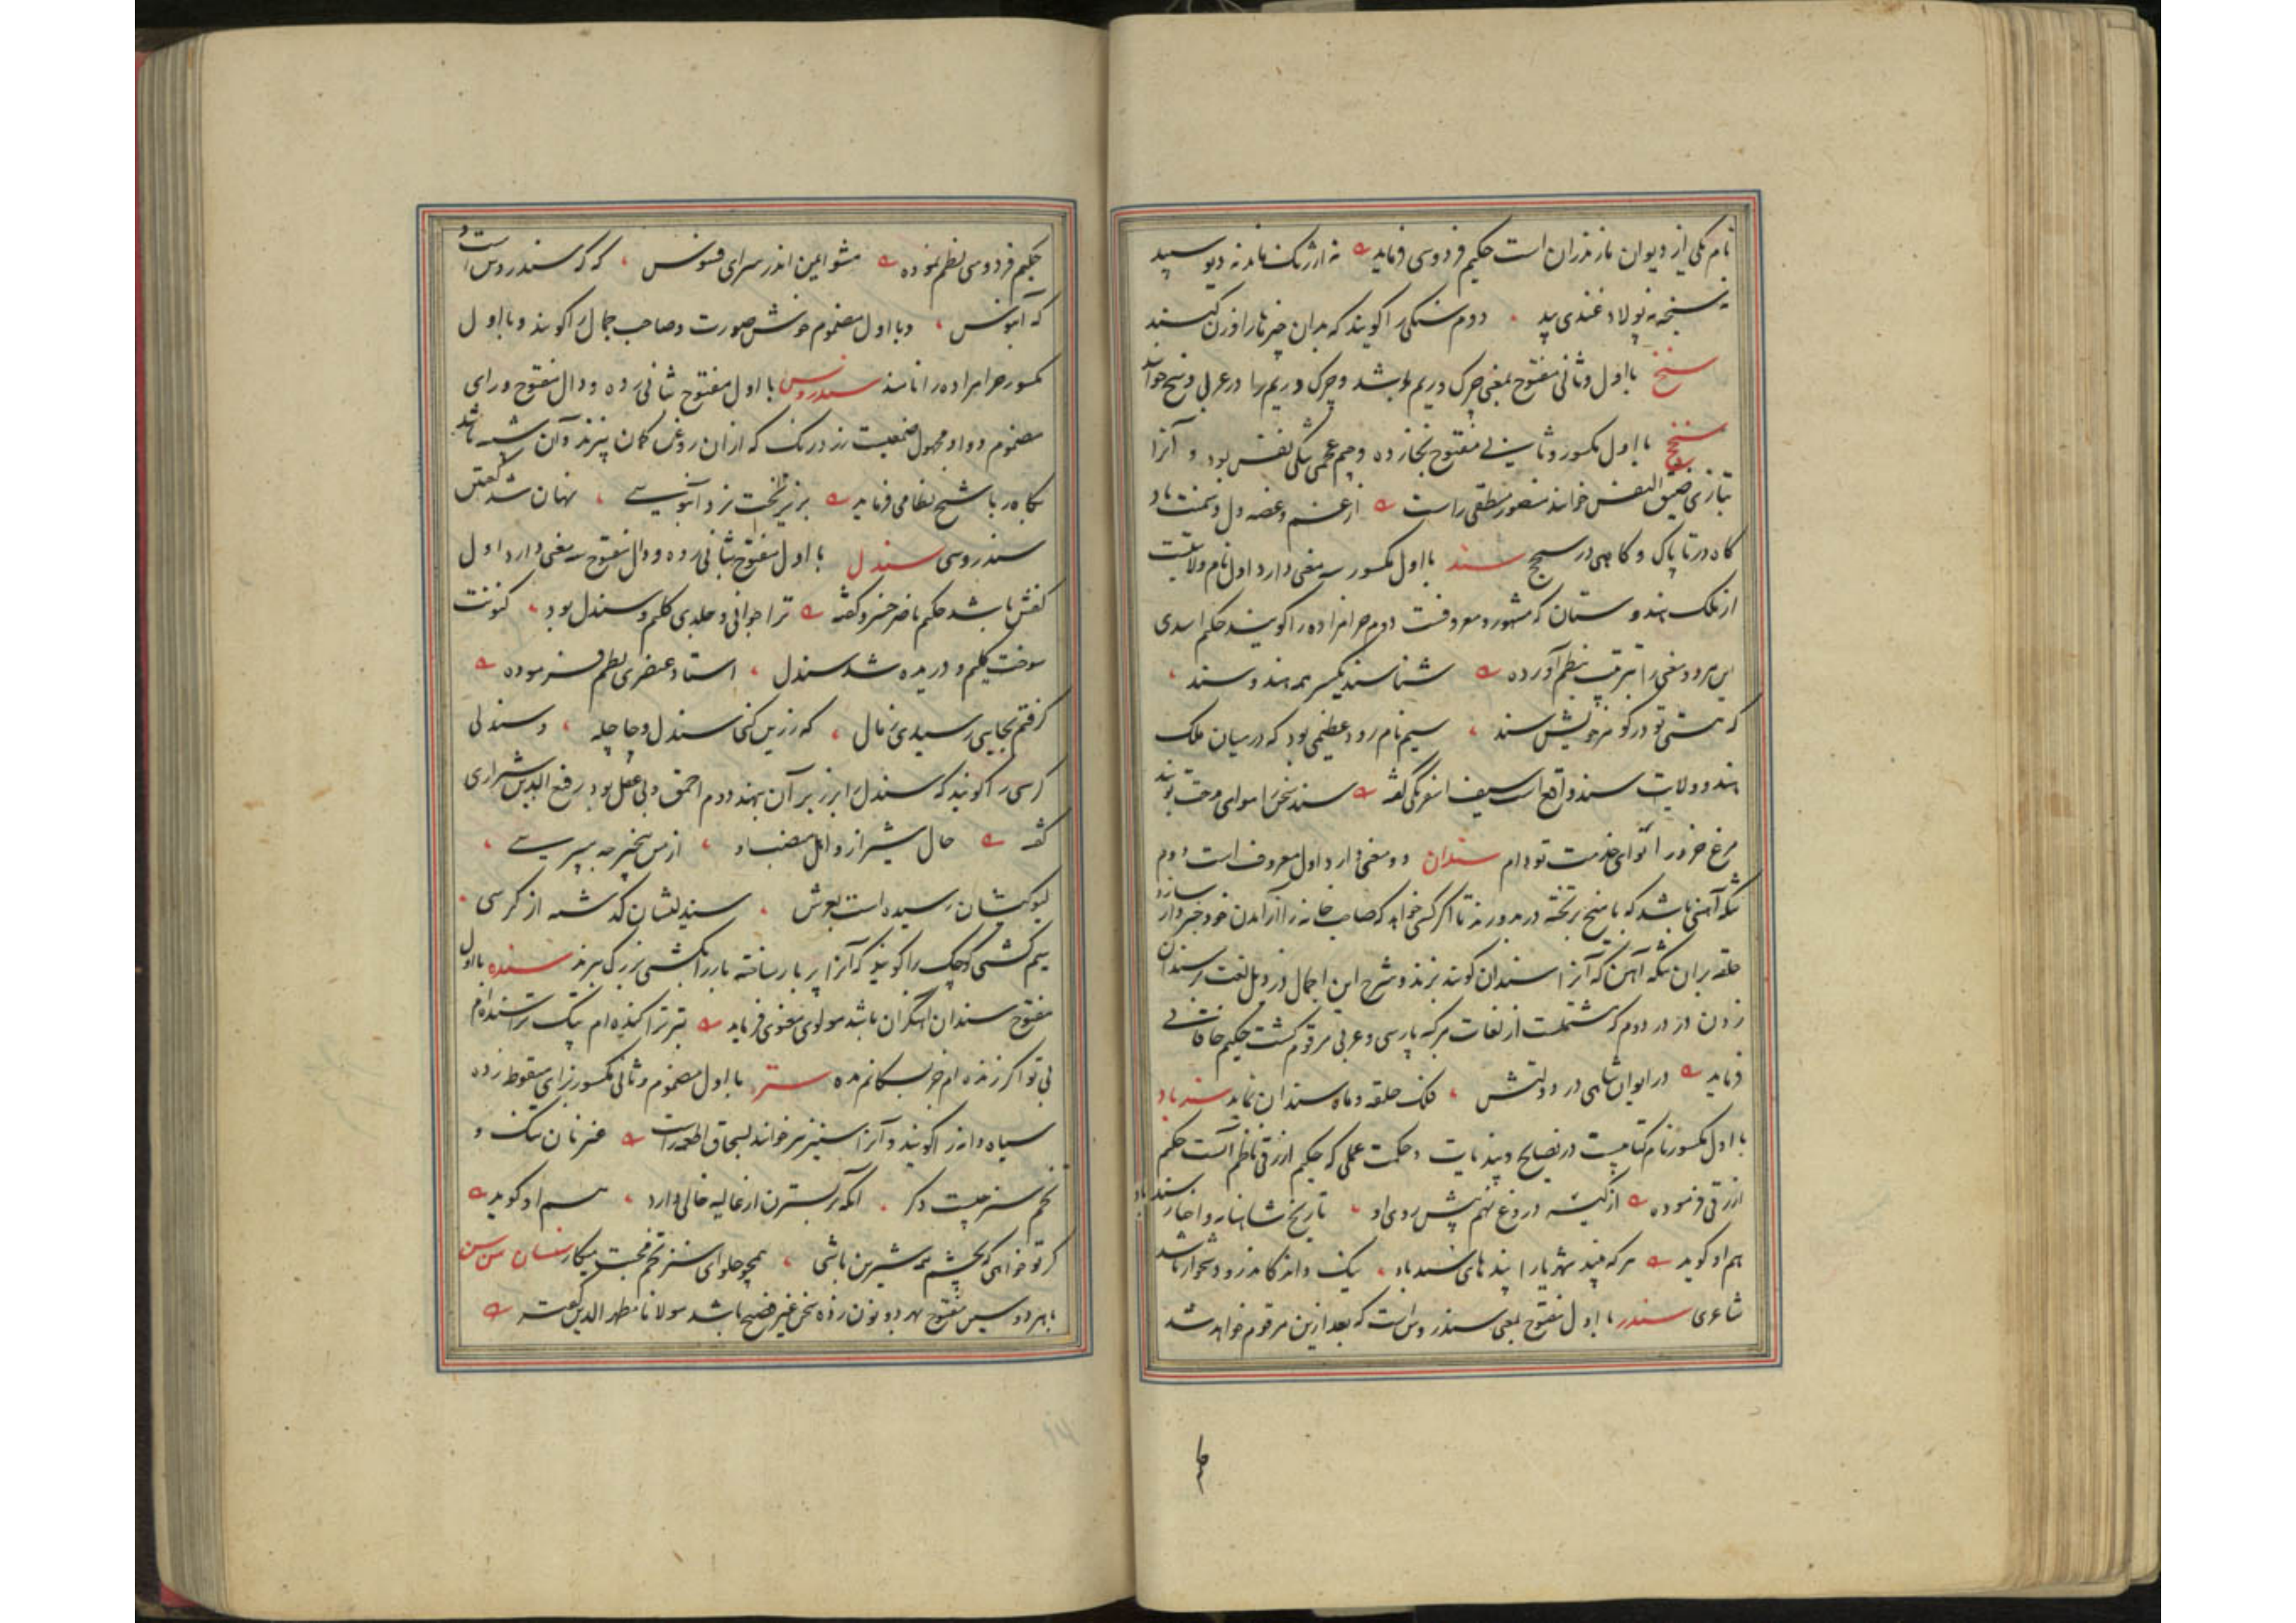 نام یکی از دیوان مازندران است حکیم فردوسی فرماید نه ارژنگ ماند نه دیو سپید
نه سنجه نه پولاد غندی نه بید دوم سنگی را گویند که بدان چیزها را وزن کنند
سنخ با اول و ثانی مفتوح بمعنی چرک و ریم باشد و چرک و ریم را در عربی وسخ خوانند
با اول مکسور و ثانی مفتوح و جیم عجمی تنگی نفس بود و آنرا
بتازی ضیق النفس خوانند منصور منطقی راست از غم و غصه دل دشمنت باد
گاه در تاپاک و گاهی در سنج سند با اول مکسور سه معنی دارد اول نام ولایتیست
از ملک هندوستان که مشهور و معروفست دوم حرامزاده را گویند حکیم اسدی
این هر دو معنی را بترتیب بنظم آورده شناسند یکسر همه هند و سند
که هستی تو در گوهر خویش سند سیم نام رود عظیمی بود که در میان ملک
هند و ولایت سند واقع است سیف اسفرنگی گفته سند
مرغ خرد را نوای خدمت تو دام سندان دو معنی دارد اول معروف است دوم
تنکه آهنی باشد که با میخ بر تخته در بدوزند تا اگر کسی خواهد که صاحب خانه را از آمدن خود خبردار سازد
حلقه بر آن تنکه آهن که آنرا سندان گویند بزند و شرح این اجمال در ذیل لغت سندان
زدن در در دوم که مشتملست از لغات مرکبه پارسی و عربی مرقوم گشت حکیم خاقانی
فرماید در ایوان شاهی در دولتش فلک حلقه و ماه سندان نماید سندباد
با اول مکسور نام کتابیست در نصایح و پندیات و حکمت عملی که حکیم ازرقی ناظم آنست حکیم
ازرقی فرموده از کینه دروغ نهم پیش روی او تاریخ شاهنامه و اخبار سندباد
هم او گوید هر که بیند شهریارا پندهای سندباد نیک داند کاندرو دشوار باشد
شاعری سندر با اول مفتوح بمعنی سندروس است که بعد ازین مرقوم خواهد شد
حکیم فردوسی نظم نموده مشو ایمن اندر سرای فسوس که گه سندروس است و
گه آبنوس و با اول مضموم خوش صورت و صاحب جمال را گویند و با اول
مکسور حرامزاده را نامند سندروس با اول مفتوح بثانی زده و دال مفتوح و رای
مضموم و واو مجهول صمغیست زرد رنگ که از آن روغن کمان پزند و آن شبیه باشد
بکاه ربا شیخ نظامی فرماید نهان شد
سندروسی سندل با اول مفتوح بثانی زده و دال مفتوح سه معنی دارد اول
کفش باشد حکیم ناصر خسرو گفته ترا جوانی و جلدی گلیم و سندل بود کنونت
سوخت گلیم و دریده شد سندل استاد عنصری نظم فرموده
گرفتم بجایی رسیدی ز مال که زرین کنی سندل و چاچله و سندلی
کرسی را گویند که سندل را بر زبر آن نهند دوم احمق و بی عقل بود رفیع الدین شیرازی
گفته حال شیراز و اهل از من بیخبر چه میپرسی
رسیده است بعرش سندلیشان گذشته از کرسی
سیم کشتی کوچک را گویند که آنرا پر بار ساخته بار را بکشتی بزرگ برند سنده با اول
مفتوح سندان آهنگران باشد مولوی معنوی فرماید
بی تو اگر زنده ام جز بسگانم مده سنز با اول مضموم و ثانی مکسور بزای منقوطه زده
سیاه دانه را گویند و آنرا سنیز نیز خوانند بسحاق اطعمه راست غیر نان تنک و
تخم سنز چیست دگر آنکه بر نسترن از غالیه خالی دارد هم او گوید
گر تو خواهی که بچشم همه شیرین باشی همچو حلوای سنز تخم محبت میکار
با هر دو سین مفتوح و هر دو نون زده سخن غیر فصیح باشد مولانا مطهر الدین گفته